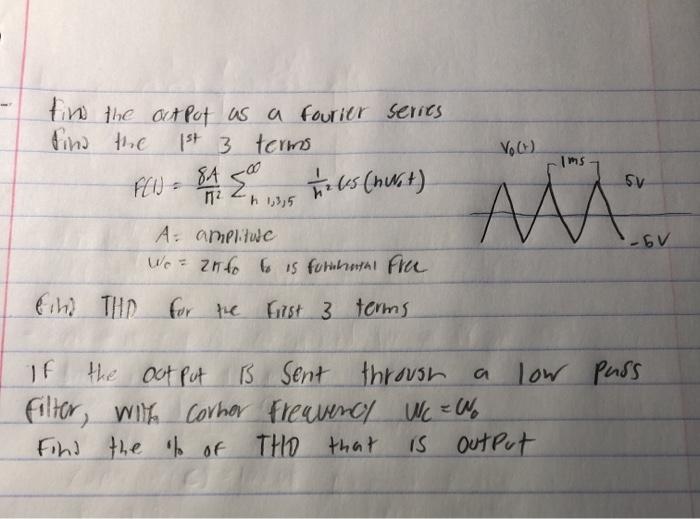 find the output as a fourier series
find the 1st 3 terms
F(t) = 8A/π² Σ∞ n 1,3,5 1/n² cos(nω₀t)
A = amplitude
ω₀ = 2πf₀ f₀ is fundamental free
find THD for the first 3 terms
If the output is sent through a low pass
filter, with corner frequency ωc = ω₀
Find the % of THD that is output
V₀(t)
1ms
5V
-5V